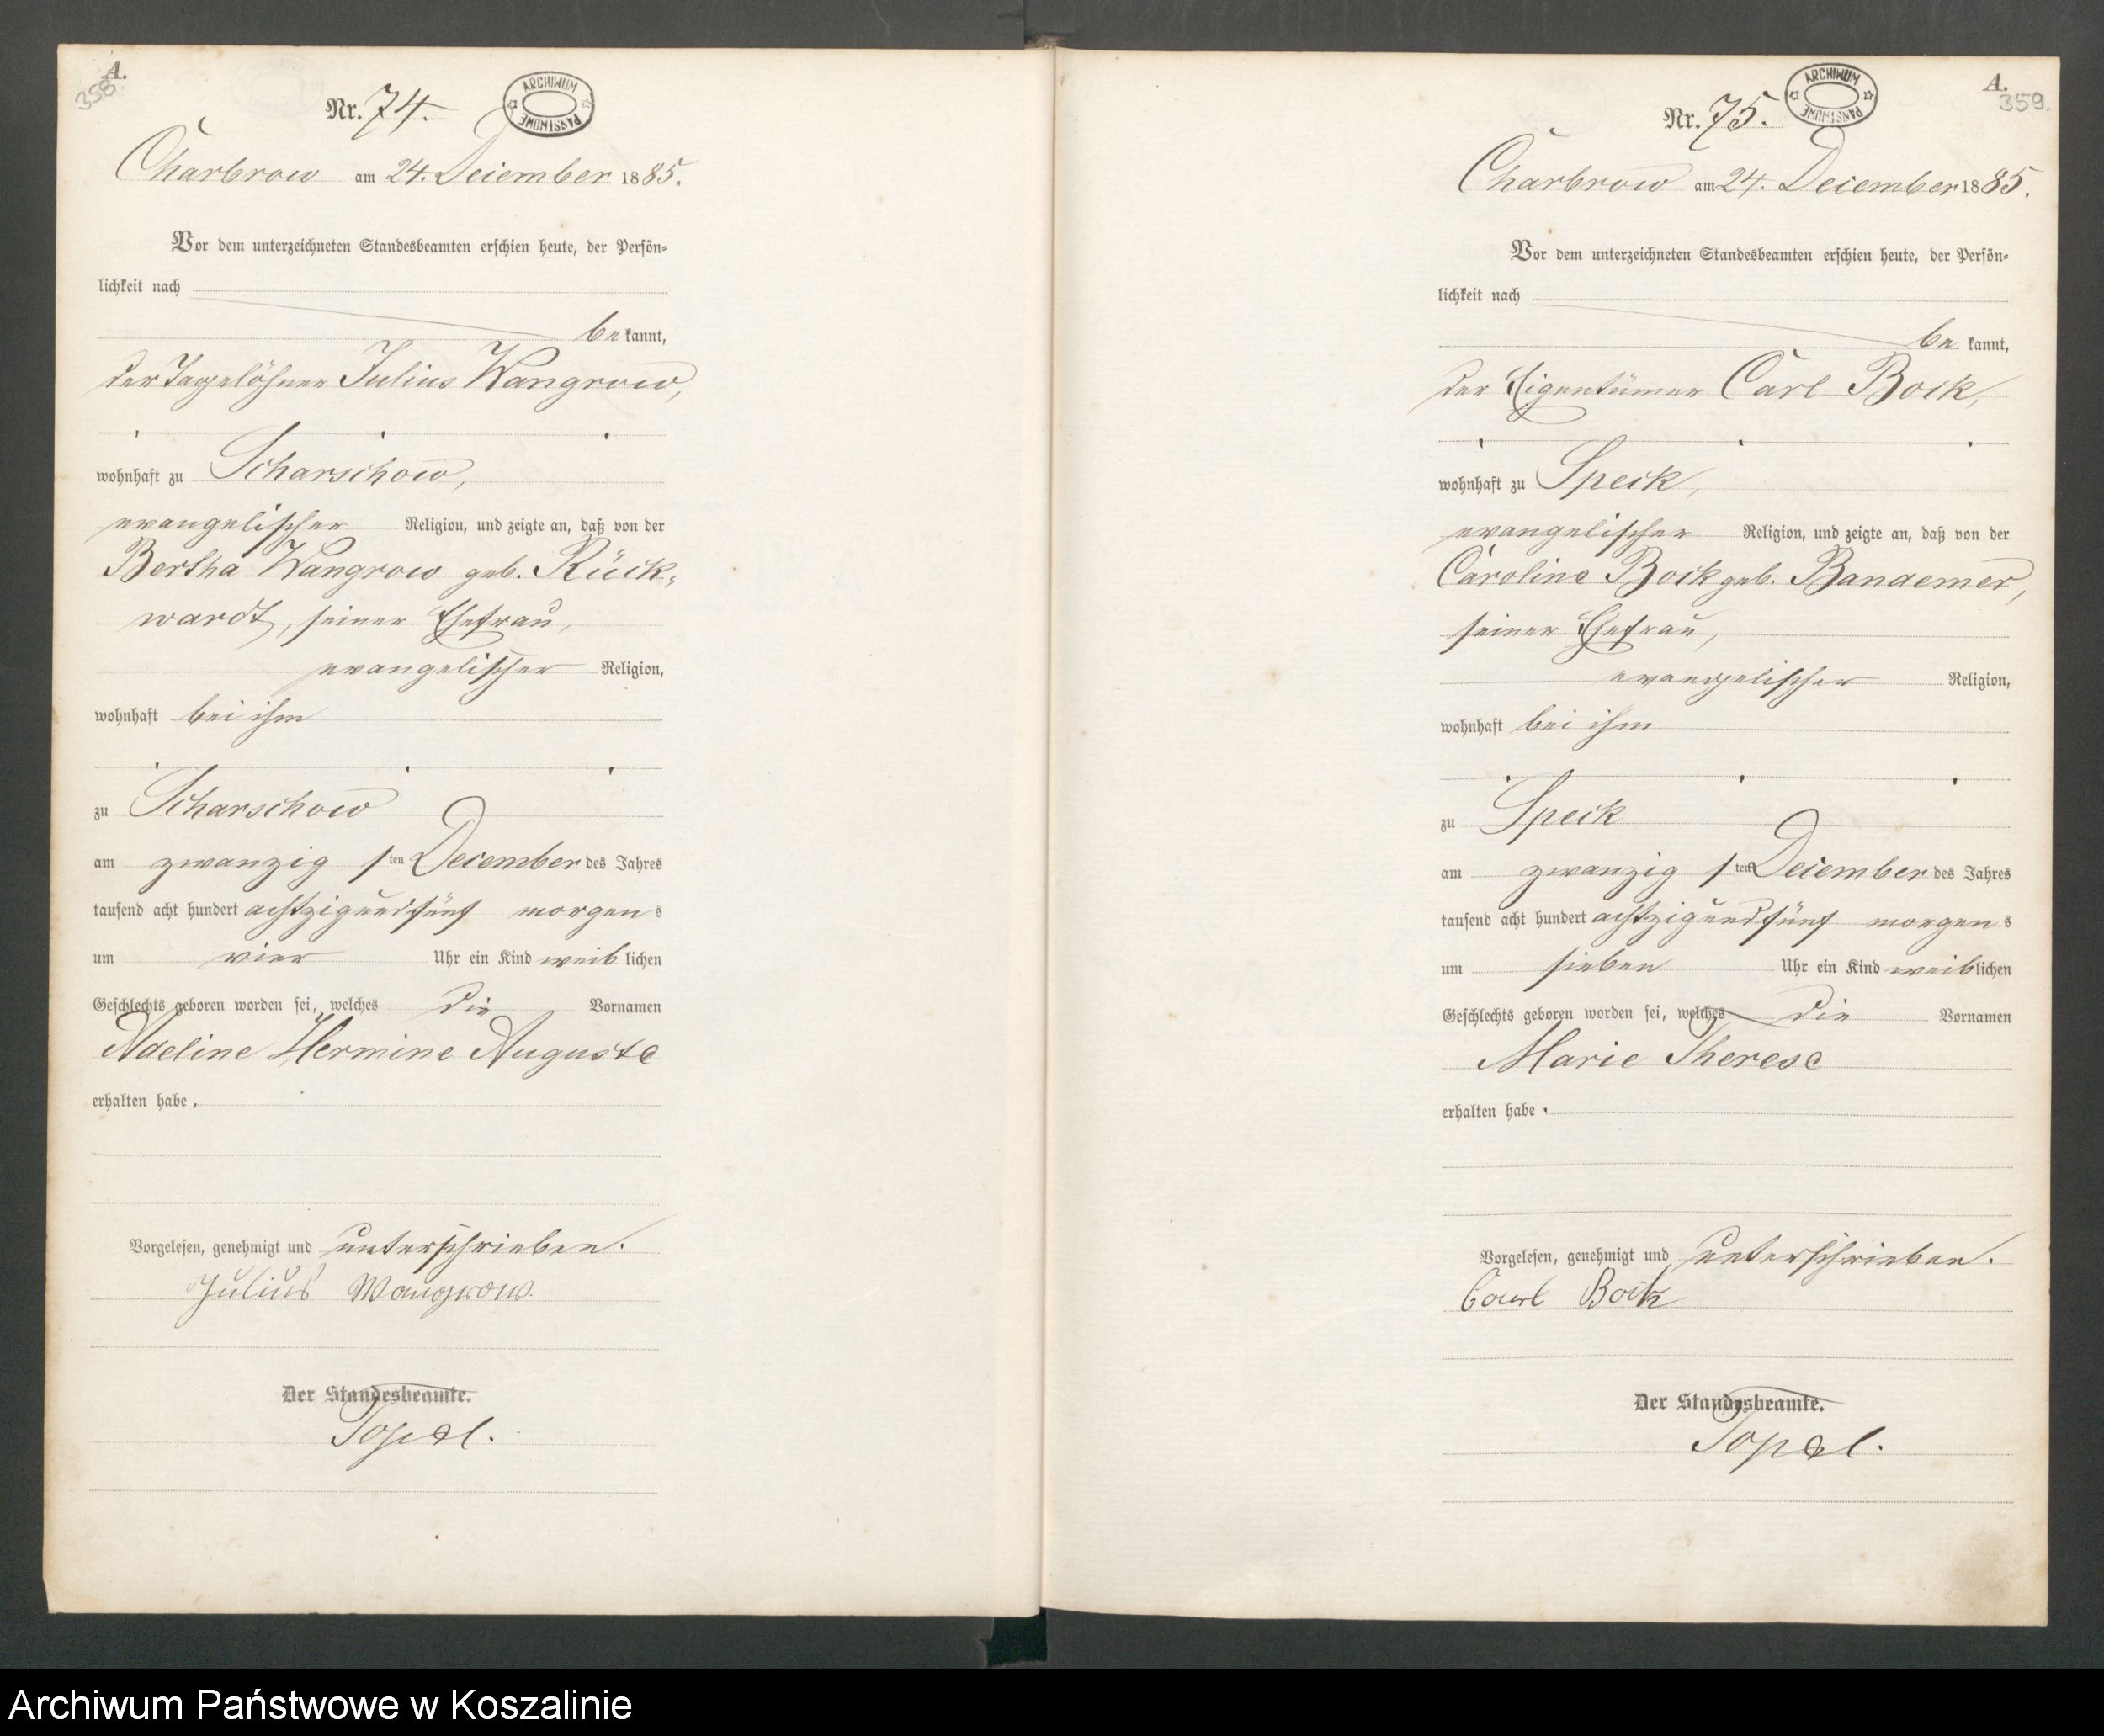 A.
358.
Nr. 74.
ARCHIWUM PAŃSTWOWE
Charbrow am 24. December 1885.
Vor dem unterzeichneten Standesbeamten erschien heute, der Persön-
lichkeit nach
be kannt,
der Tagelöhner Julius Wangrow,
wohnhaft zu Scharschow,
evangelischer Religion, und zeigte an, daß von der
Bertha Wangrow geb. Rück-
wardt, seiner Ehefrau,
evangelischer Religion,
wohnhaft bei ihm
zu Scharschow
am zwanzig 1ten December des Jahres
tausend acht hundert achtzig und fünf morgens
um vier Uhr ein Kind weiblichen
Geschlechts geboren worden sei, welches die Vornamen
Adeline Hermine Auguste
erhalten habe.
Vorgelesen, genehmigt und unterschrieben.
Julius Wangrow.
Der Standesbeamte.
Topel.
A.
359.
Nr. 75.
ARCHIWUM PAŃSTWOWE
Charbrow am 24. December 1885.
Vor dem unterzeichneten Standesbeamten erschien heute, der Persön-
lichkeit nach
be kannt,
der Eigentümer Carl Bock,
wohnhaft zu Speck,
evangelischer Religion, und zeigte an, daß von der
Caroline Bock geb. Bandemer,
seiner Ehefrau,
evangelischer Religion,
wohnhaft bei ihm
zu Speck
am zwanzig 1ten December des Jahres
tausend acht hundert achtzig und fünf morgens
um sieben Uhr ein Kind weiblichen
Geschlechts geboren worden sei, welches die Vornamen
Marie Therese
erhalten habe.
Vorgelesen, genehmigt und unterschrieben.
Carl Bock
Der Standesbeamte.
Topel.
Archiwum Państwowe w Koszalinie